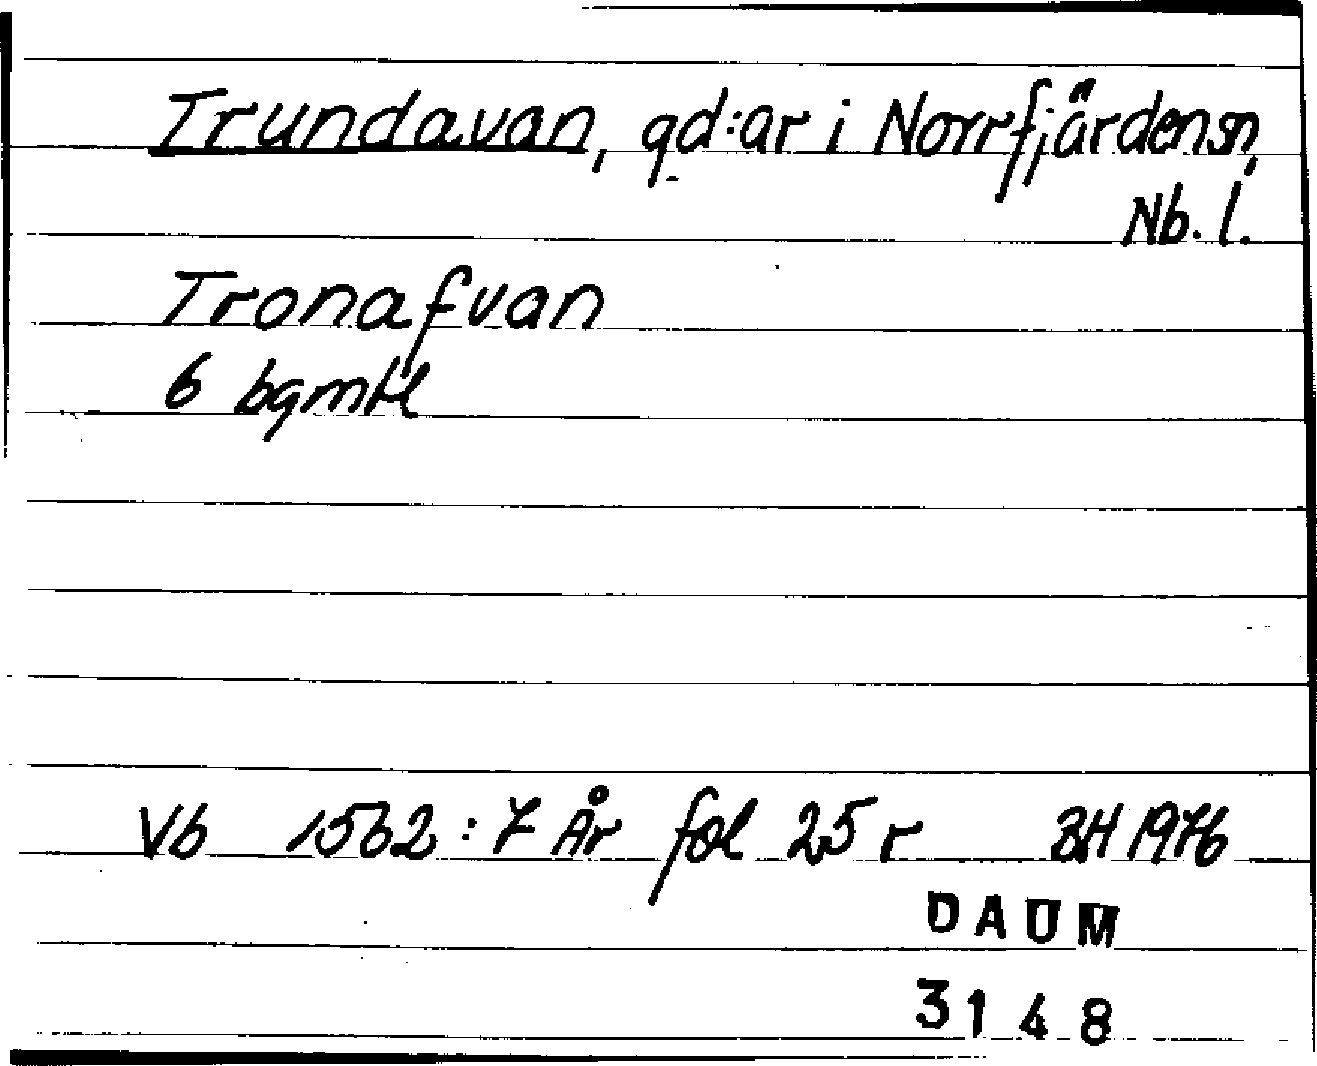 Trundavan, gd:ar i Norrfjärdens sn,
Nb. l.
Tronafvan
6 bgmtl
Vb 1562:7 År fol 25 r BH 1976
DAUM
3148